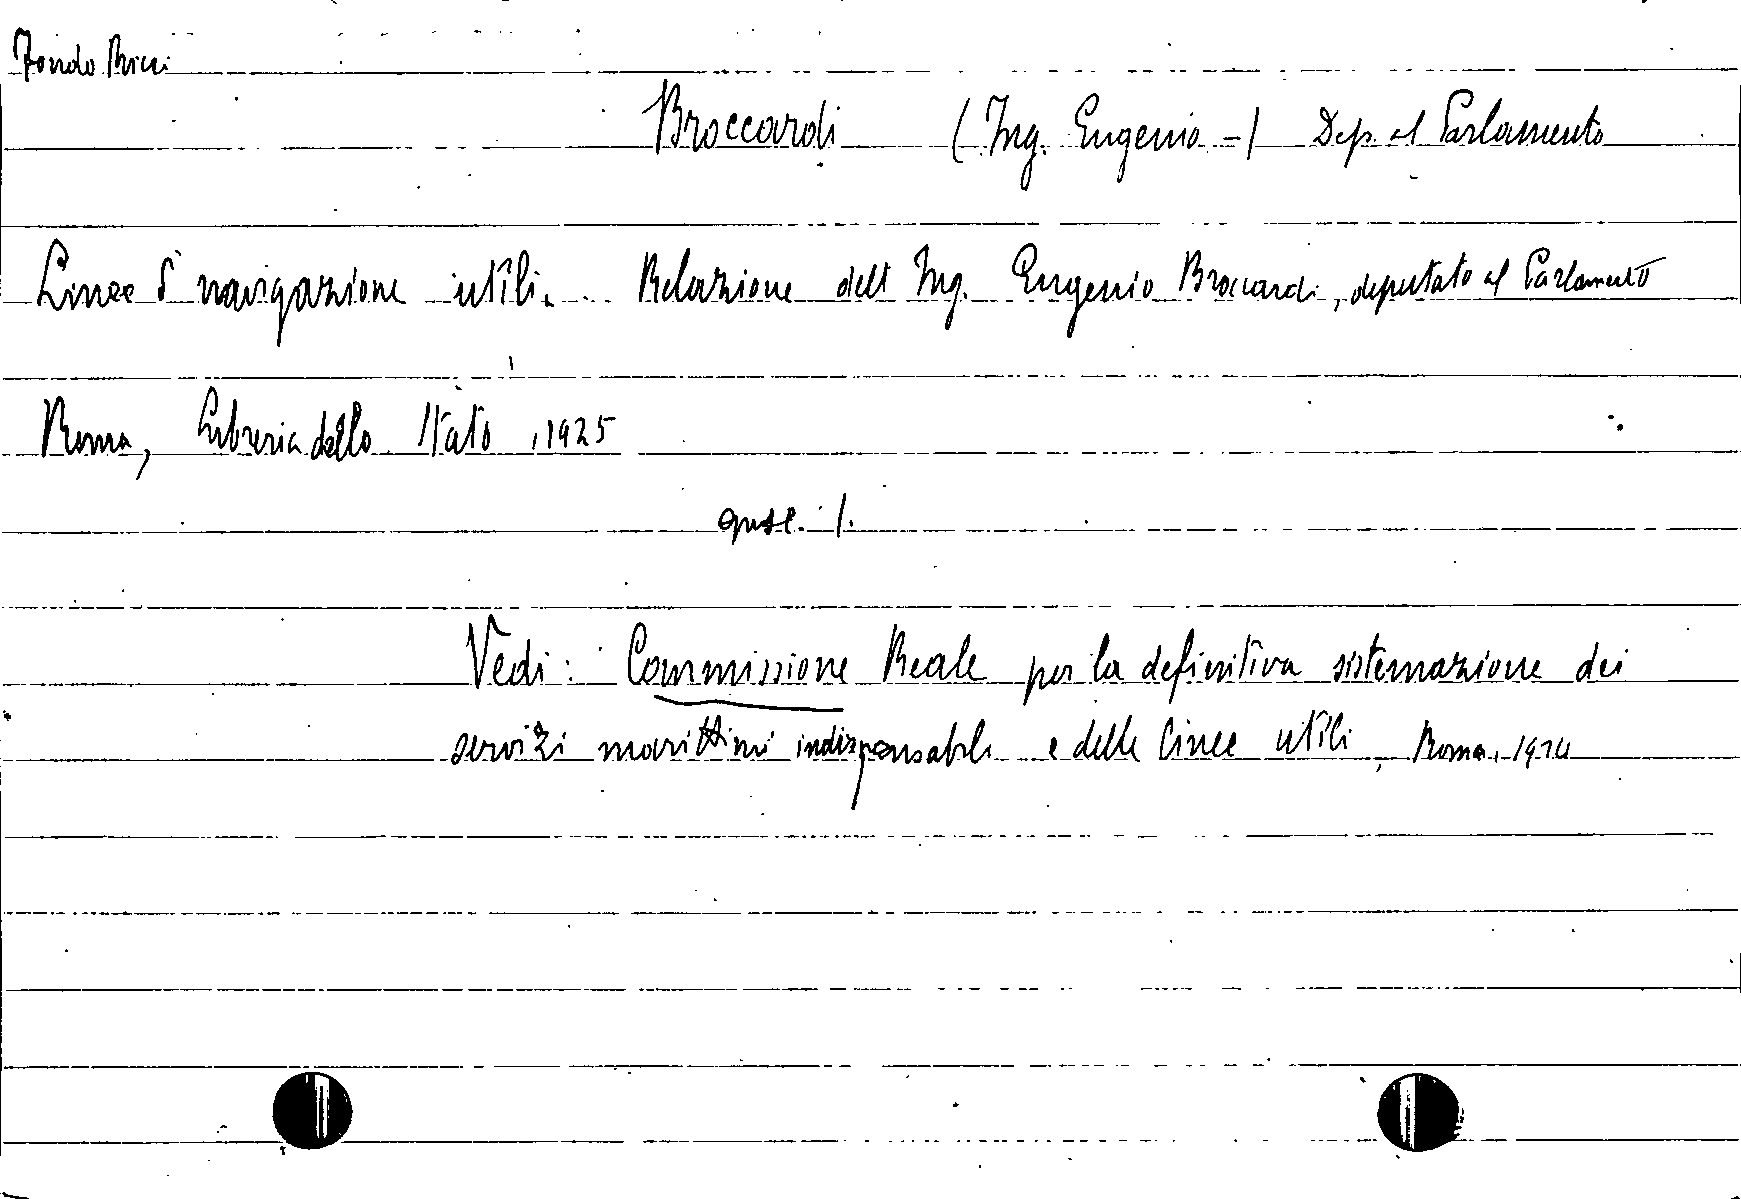 Fondo Ricci
Broccardi (Ing. Eugenio -) Dep. al Parlamento
Linee di navigazione utili. Relazione dell Ing. Eugenio Broccardi, deputato al Parlamento
Roma, Libreria dello Stato, 1925
Vedi: Commissione Reale per la definitiva sistemazione dei
servizi marittimi indispensabili e delle linee utili, Roma, 1924